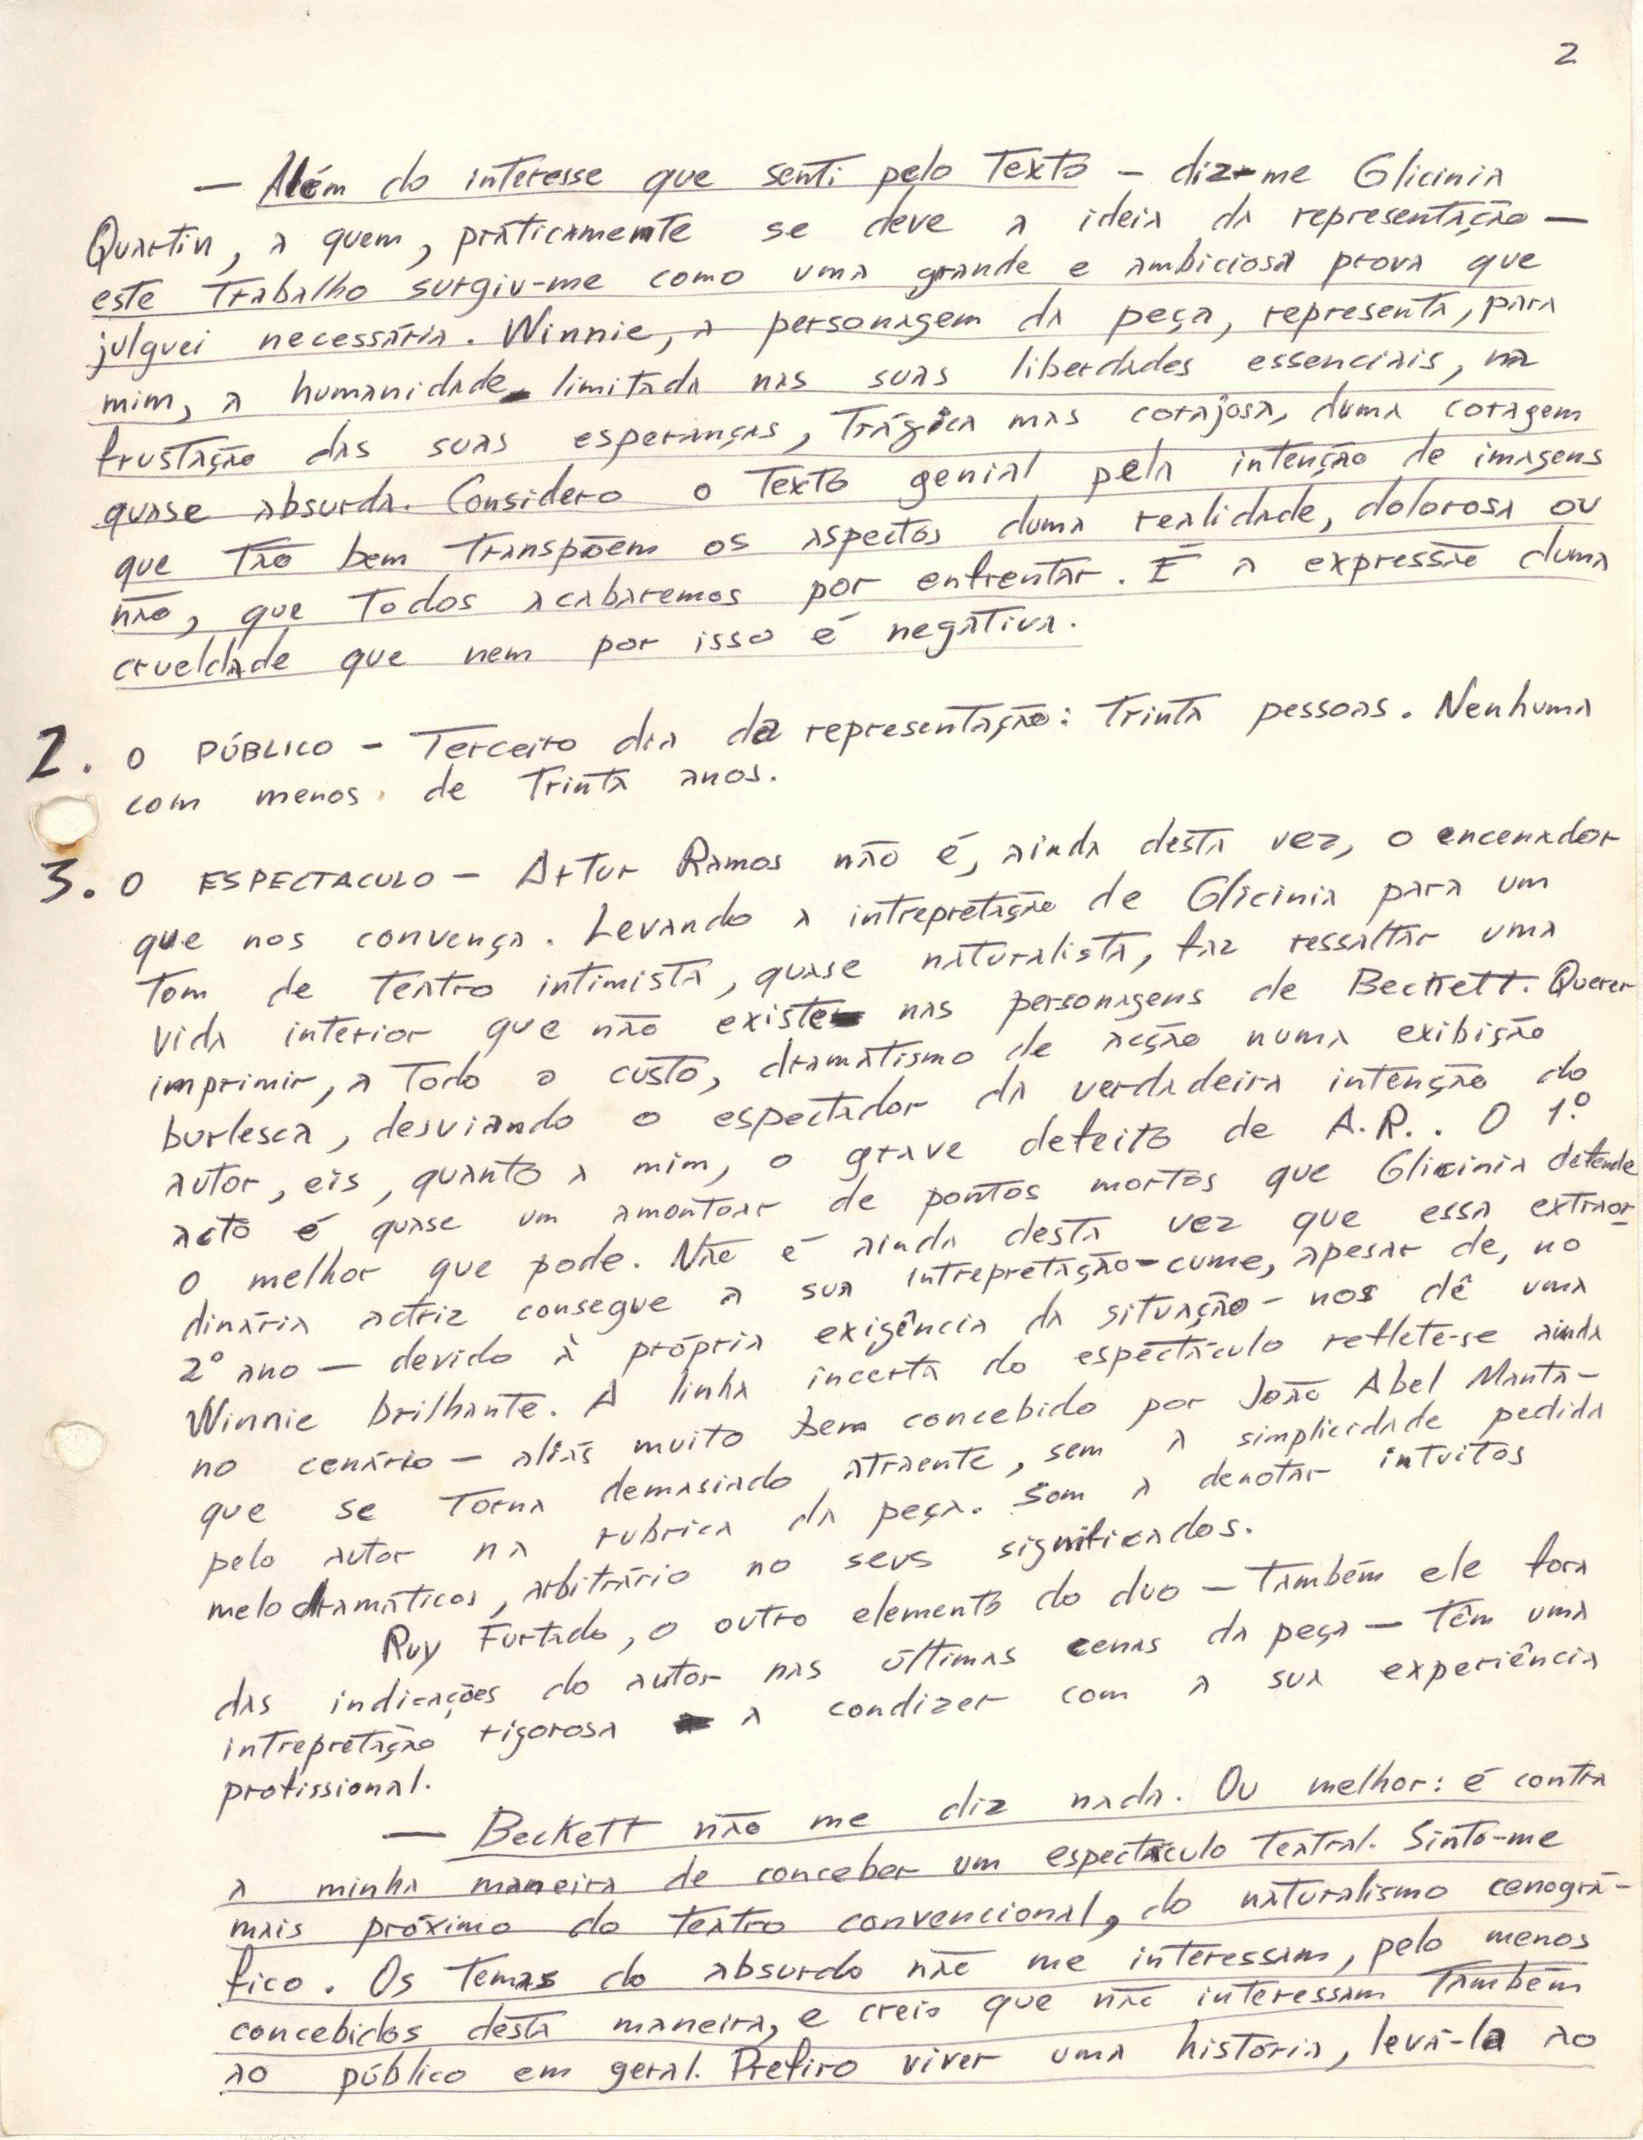 2
— Além do interesse que senti pelo texto — diz-me Glicinia
Quartin, a quem, práticamente se deve a ideia da representação —
este trabalho surgiu-me como uma grande e ambiciosa prova que
julguei necessária. Winnie, a personagem da peça, representa, para
mim, a humanidade limitada nas suas liberdades essenciais, na
frustação das suas esperanças, trágica mas corajosa, duma coragem
quase absurda. Considero o texto genial pela intenção de imagens
que tão bem transpõem os aspectos duma realidade, dolorosa ou
não, que todos acabaremos por enfrentar. É a expressão duma
crueldade que nem por isso é negativa.
2. O PÚBLICO — Terceiro dia da representação: trinta pessoas. Nenhuma
com menos de trinta anos.
3. O ESPECTACULO — Artur Ramos não é, ainda desta vez, o encenador
que nos convença. Levando a intrepretação de Glicinia para um
tom de teatro intimista, quase naturalista, faz ressaltar uma
vida interior que não existe nas personagens de Beckett. Querer
imprimir, a todo o custo, dramatismo de acção numa exibição
burlesca, desviando o espectador da verdadeira intenção do
autor, eis, quanto a mim, o grave defeito de A.R.. O 1.º
acto é quase um amontoar de pontos mortos que Glicinia defende
o melhor que pode. Não é ainda desta vez que essa extraor-
dinária actriz consegue a sua intrepretação-cume, apesar de, no
2º ano — devido à própria exigência da situação — nos dê uma
Winnie brilhante. A linha incerta do espectáculo reflete-se ainda
no cenário — aliás muito bem concebido por João Abel Manta —
que se torna demasiado atraente, sem a simplicidade pedida
pelo autor na rubrica da peça. Som a denotar intuitos
melodramáticos, arbitrário no seus significados.
Ruy Furtado, o outro elemento do duo — também ele fora
das indicações do autor nas últimas cenas da peça — têm uma
intrepretação rigorosa a condizer com a sua experiência
profissional.
— Beckett não me diz nada. Ou melhor: é contra
a minha maneira de conceber um espectáculo teatral. Sinto-me
mais próximo do teatro convencional, do naturalismo cenográ-
fico. Os temas do absurdo não me interessam, pelo menos
concebidos desta maneira, e creio que não interessam também
ao público em geral. Prefiro viver uma história, levá-la ao